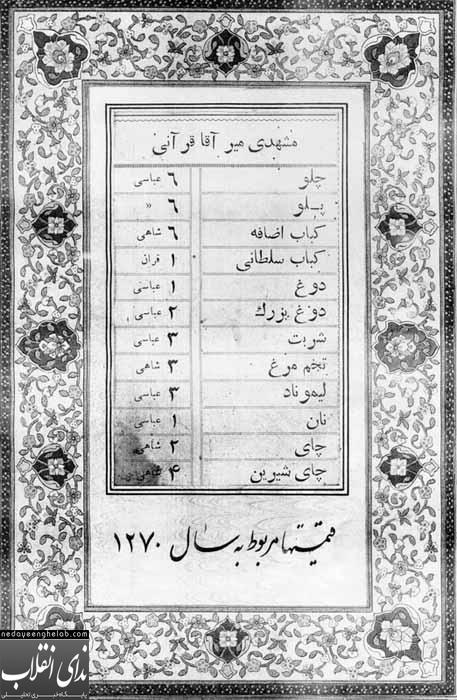 مشهدی میر آقا قرآنی
چلو ۶ عباسی
پلو ۶ «
کباب اضافه ۶ شاهی
کباب سلطانی ۱ قران
دوغ ۱ عباسی
دوغ بزرك ۲ عباسی
شربت ۳ عباسی
تخم مرغ ۳ شاهی
لیموناد ۳ عباسی
نان ۱ عباسی
چای ۲ شاهی
چای شیرین ۴ شاهی
قیمتها مربوط به سال ۱۲۷۰
nedayeenghelab.com
ندای انقلاب
پایگاه خبری تحلیلی